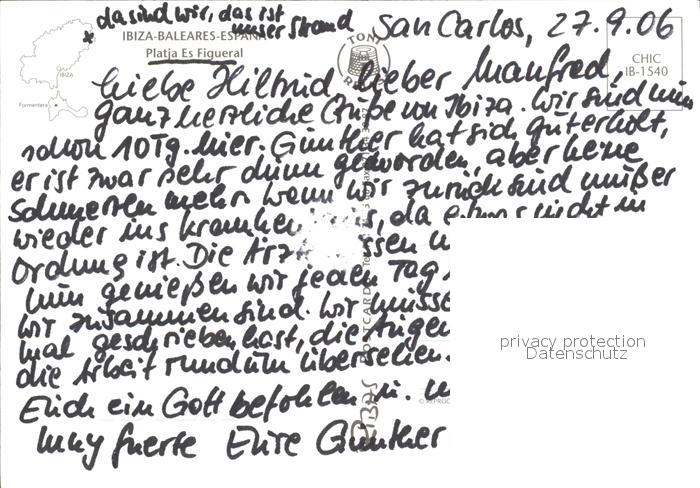 da sind wir, das ist
unser Strand
San Carlos, 27.9.06
IBIZA-BALEARES-ESPAÑA
Platja Es Figueral
IBIZA
Formentera
TONI
CHIC
IB-1540
liebe Hiltrud, lieber Manfred,
ganz herzliche Grüße von Ibiza. Wir sind nun
schon 10 Tg. hier. Günther hat sich gut erholt,
er ist zwar sehr dünn geworden, aber keine
Schmerzen mehr. Wenn wir zurück sind muß er
wieder ins Krankenhaus, da etwas nicht in
Ordnung ist. Die Ärzte
nun genießen wir jeden Tag
wir zusammen sind. Wir müsse
mal geschrieben hast, die Augen
die Arbeit rundum übersehen.
Euch ein Gott befohlen
muy fuerte Eure Günther
POSTCARDS
privacy protection
Datenschutz